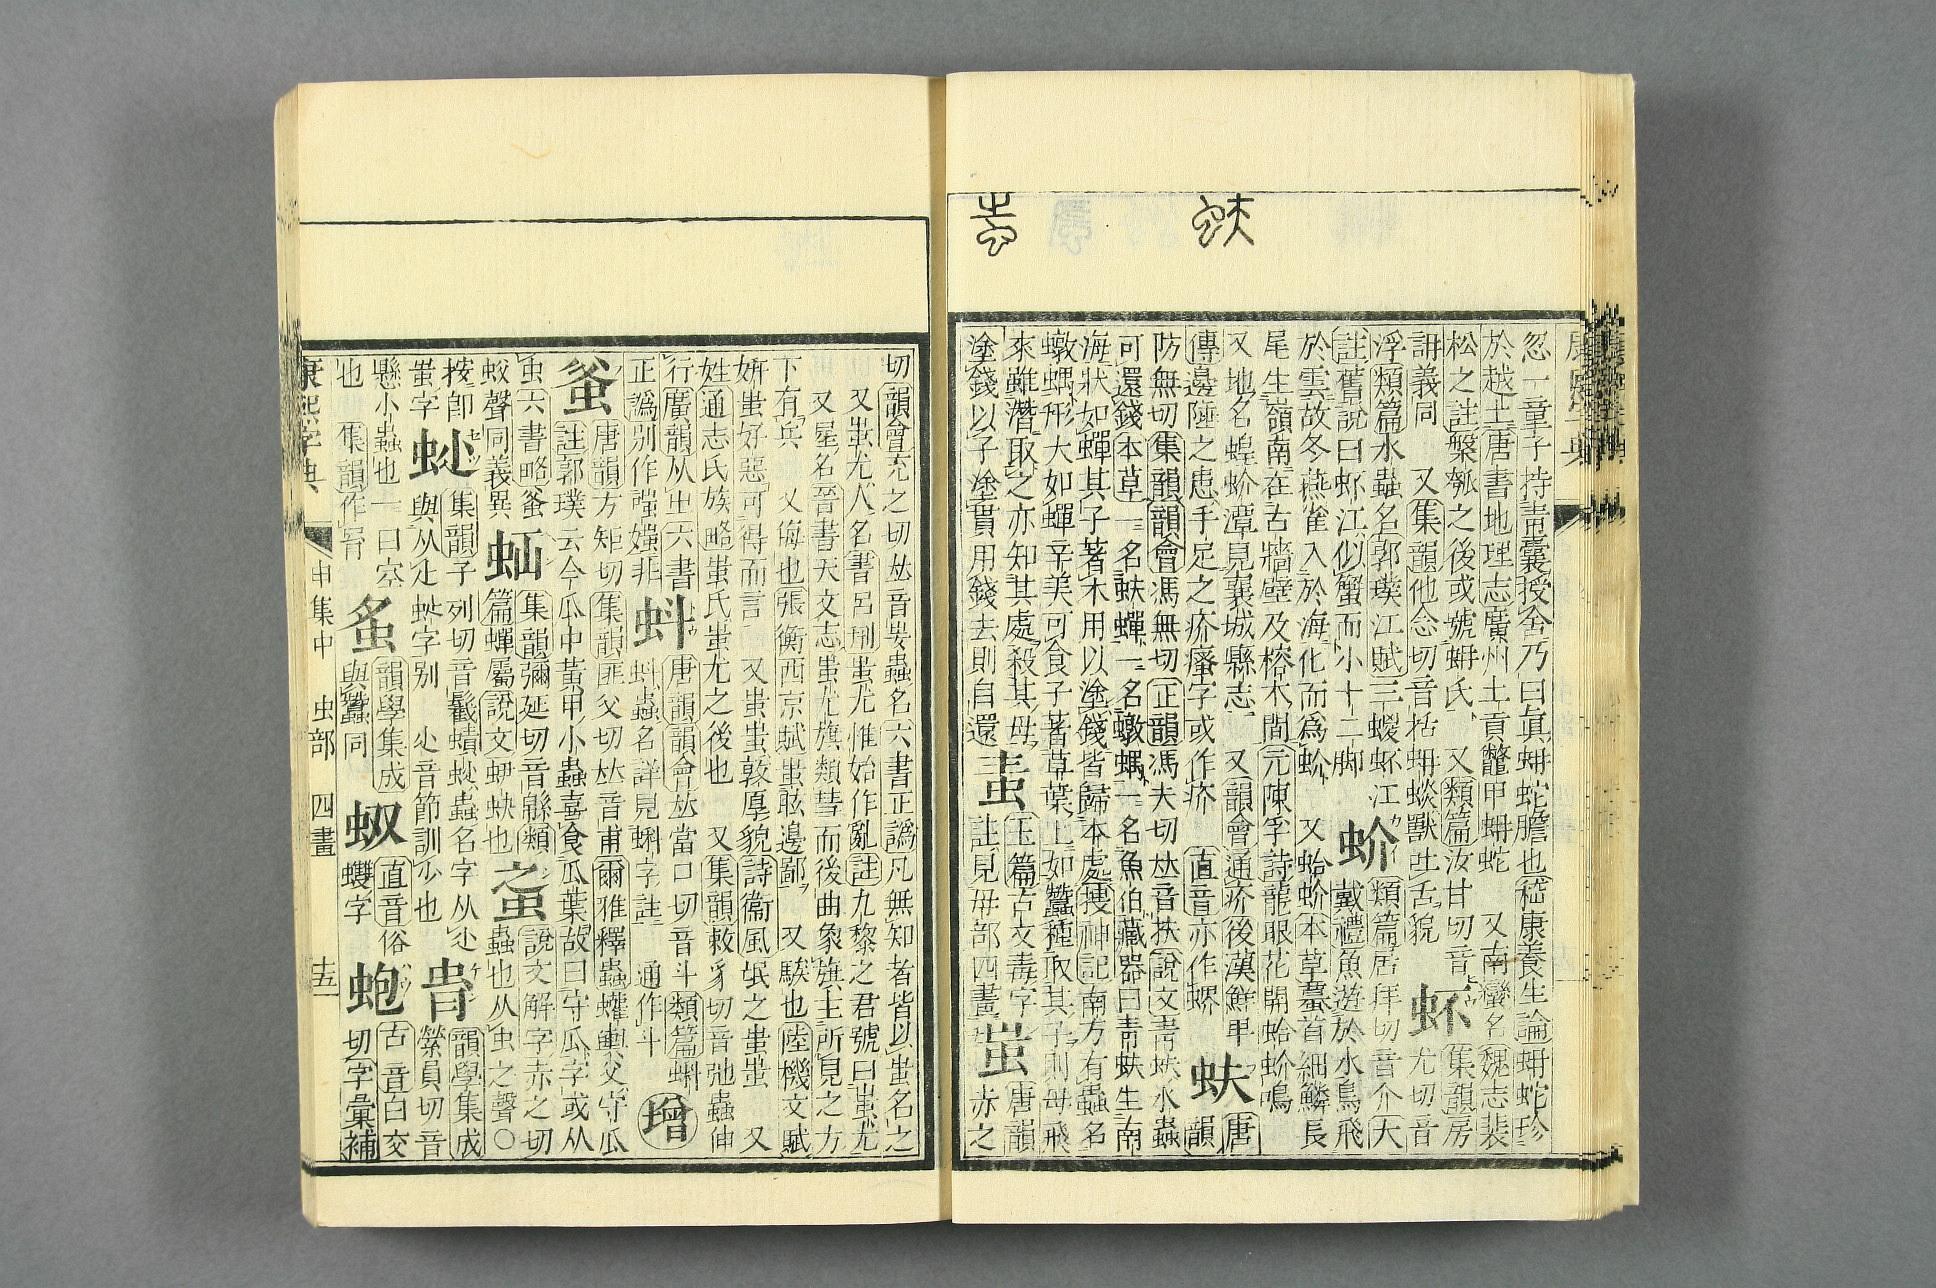 忽一童子持靑囊授含乃曰眞蚺蛇膽也嵇康養生論蚺蛇珍
於越土唐書地理志廣州土貢鼈甲蚺蛇 又南蠻名魏志裴
松之註槃瓠之後或號蚺氏 又類篇汝甘切音
詽義同 又集韻他念切音栝蚺蛺獸吐舌貌
蚽 集韻房尤切音
浮類篇水蟲名郭璞江賦三蝬蚽江
註舊說曰蚽江似蟹而小十二脚
蚧 類篇居拜切音介大戴禮魚遊於水鳥飛
於雲故冬燕雀入於海化而爲蚧 又蛤蚧本草蟇首細鱗長
尾生嶺南在古牆壁及榕木間元陳孚詩龍眼花開蛤蚧鳴
又地名蝗蚧潭見襄城縣志 又韻會通疥後漢鮮卑
傳邊陲之患手足之疥瘙字或作疥 直音亦作
蚨 唐韻
防無切集韻韻會馮無切正韻馮夫切𠀤音扶說文靑蚨水蟲
可還錢本草一名蚨蟬一名蟱蝸一名魚伯藏器曰靑蚨生南
海狀如蟬其子著木用以塗錢皆歸本處搜神記南方有蟲名
蝸形大如蟬辛美可食子著草葉上如蠶種取其子則母飛
來雖潛取之亦知其處殺其母
塗錢以子塗貫用錢去則自還
蚩 玉篇古文毒字註見毋部四畫
蚩 唐韻赤之
切韻會充之切𠀤音媸蟲名六書正譌凡無知者皆以蚩名之
又蚩尤人名書呂刑蚩尤惟始作亂註九黎之君號曰蚩尤
又星名晉書天文志蚩尤旗類彗而後曲象旗主所見之方
下有兵 又侮也張衡西京賦蚩眩邊鄙 又騃也陸機文賦
姸蚩好惡可得而言 又蚩蚩敦厚貌詩衞風氓之蚩蚩 又
姓通志氏族略蚩氏蚩尤之後也 又集韻敕豸切音弛蟲伸
行廣韻从𡳿六書
正譌別作 媸非
蚪 唐韻韻會𠀤當口切音斗類篇蝌
蚪蟲名詳見蝌字註 通作斗
增
蚠 唐韻方矩切集韻匪父切𠀤音甫爾雅釋蟲蠸輿父守瓜
註郭璞云今瓜中黃甲小蟲喜食瓜葉故曰守瓜字或从
虫六書略
蚥聲同義異
蚲 集韻彌延切音緜類
篇蟬屬說文蚲蚗也
蚩 說文解字赤之切
蟲也从虫之聲〇
按卽
蚩字
集韻子列切音䰏蠀蟲名字从
與从止蚩字別 音節訓少也
𧈫 韻學集成
縈員切音
懸小蟲也一曰空
也集韻作肙
蚤 韻學集成
與蠶同
蚁 直音俗
蠖字
蚫 古音白交
切字彙補
康熙字典
申集中 虫部 四畫
十五